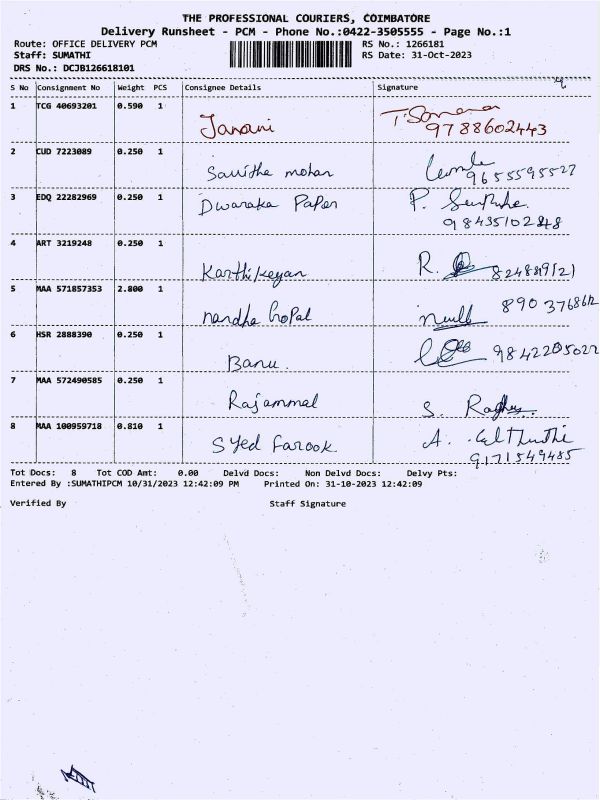 THE PROFESSIONAL COURIERS, COIMBATORE
Delivery Runsheet - PCM - Phone No.:0422-3505555 - Page No.:1
Route: OFFICE DELIVERY PCM RS No.: 1266181
Staff: SUMATHI RS Date: 31-Oct-2023
DRS No.: DCJB126618101
S No Consignment No Weight PCS Consignee Details Signature
1 TCG 40693201 0.590 1 Janani
9788602443
2 CUD 7223089 0.250 1 Savitha mohan
9655595527
3 EDQ 22282969 0.250 1 Dwaraka Paper P.
98435102848
4 ART 3219248 0.250 1 Karthikeyan R.
5 MAA 571857353 2.800 1 nandha GoPal
6 HSR 2888390 0.250 1 Banu. 9842205022
7 MAA 572490585 0.250 1 Rajammal S. Raghu
8 MAA 100959718 0.810 1 Syed farook A.
9171549485
Tot Docs: 8 Tot COD Amt: 0.00 Delvd Docs: Non Delvd Docs: Delvy Pts:
Entered By :SUMATHIPCM 10/31/2023 12:42:09 PM Printed On: 31-10-2023 12:42:09
Verified By Staff Signature